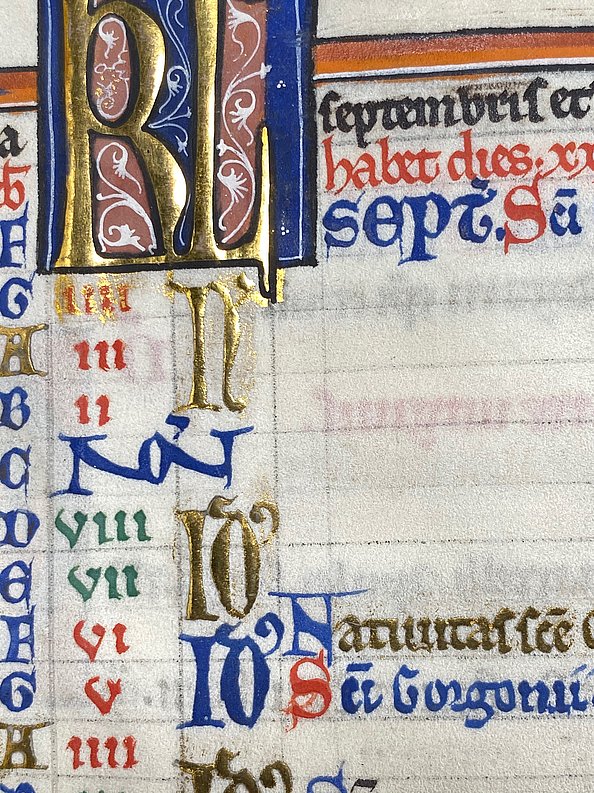 KL
a septembris et
habet dies. xx
F sept̄. Sc̄i
G iiii N̄
A iii
B ii
C Noñ
D viii Id᷒
E vii
F vi Id᷒ Natiuitas sc̄e
G v Sc̄i Gorgonii
A iiii